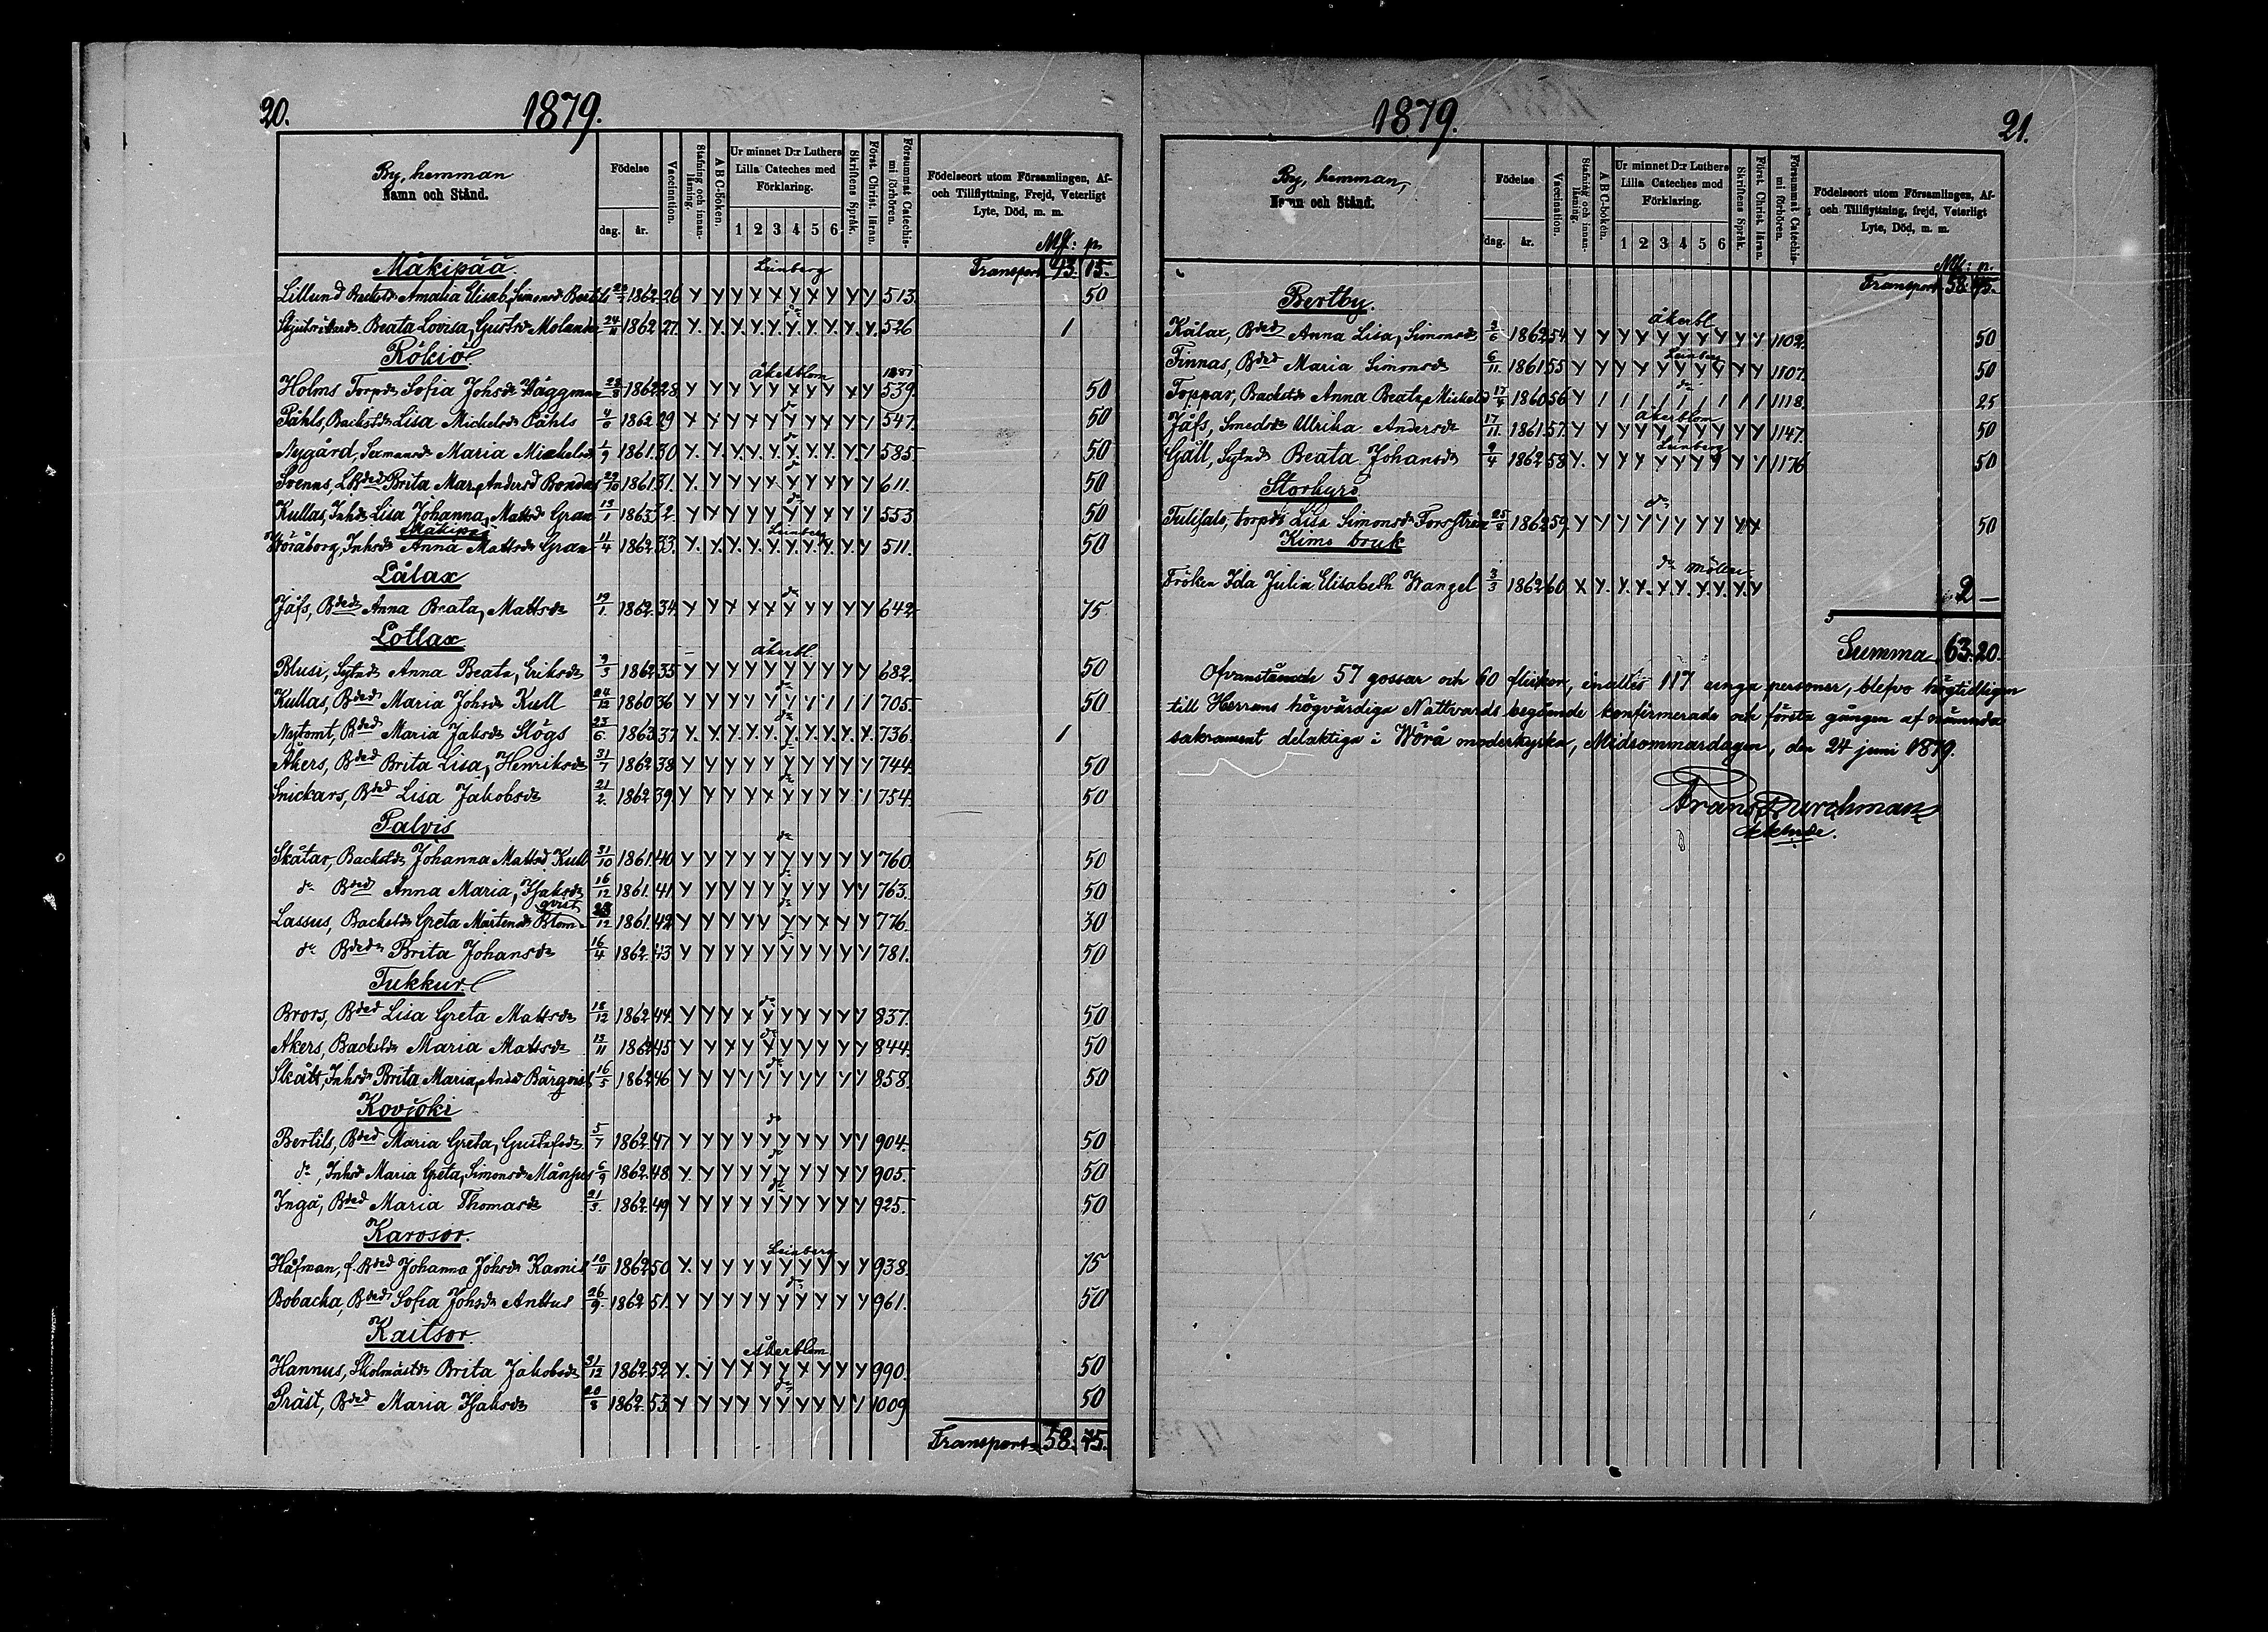 20. 1879.
By, hemman
Namn och Stånd.
Födelse
dag. år.
Vaccination.
Stafning och innanläsning.
A B C-boken.
Ur minnet D:r Luthers Lilla Cateches med Förklaring.
1 2 3 4 5 6
Skriftens Språk.
Först. Christ. läran.
Försummat Catechismi förhören.
Födelseort utom Församlingen, Af- och Tillflyttning, Frejd, Veterligt Lyte, Död, m. m.
Mk: p.
Mäkipää Leinberg Transport 43. 15.
Lillund Amalia Elisab. Simonsd 1862 26 Y Y Y Y Y Y Y Y Y Y Y 513. 50
Beata Lovisa, Gustsdr Molander 24/11 1862 27. Y. Y. Y. Y. Y. Y. Y. Y. Y. Y. 526 1
Rökiö
Holms Torpdr Sofia Johsdr Wäggman 1862 28 åkerblom Y Y Y Y Y Y Y Y Y Y 539. 50
Påhls, Backstdr Lisa Michelsdr Påhls 4/6 1862 29 Y Y Y Y Y Y Y Y Y Y 547. 50
Nygård, Sexmansdr Maria Mickelsdr 1/9 1861 30 Y Y Y Y Y Y Y Y Y Y 585 50
Svenns, Brita Mar. Andersd Bondas 29/10 1861 31. Y Y Y Y Y Y Y Y Y Y 611. 50
Kullas, Inhdr Lisa Johanna, Mattsd Gran 13/1 1863 32. Y Y Y Y Y Y Y Y Y Y 553 50
Mäkipää Leinberg
Wöråborg, Inhsdr Anna Mattsdr Gran 11/4 1862 33. Y Y Y Y Y Y Y Y Y Y 511. 50
Lålax
Jåfs, Bdedr Anna Beata, Mattsdr 19/1. 1862. 34. Y Y Y Y Y Y Y Y Y Y 642 75
Lotlax
Blusi, Sytndr Anna Beata, Eriksdr 9/3 1862 35 åkerbl. Y Y Y Y Y Y Y Y Y Y 682. 50
Kullas, Bdedr Maria Johsdr Kull 24/12 1860 36 Y Y Y Y Y Y Y / / / 705 50
Nytomt, Bdedr Maria Jaksdr Skögs 23/6 1863. 37 Y Y Y Y Y Y Y Y Y Y 736. 1
Åkers, Bded Brita Lisa, Henriksdr 31/7 1862 38 Y Y Y Y Y Y Y Y Y Y 744. 50
Snickars, Bded Lisa Jakobsdr 21/2. 1862 39. Y Y Y Y Y Y Y Y Y Y 754. 50
Palvis
Skåtar, Backstdr Johanna Mattsd Kull 31/10 1861. 40 Y Y Y Y Y Y Y Y Y Y 760. 50
dr Bdedr Anna Maria, Isaksdr 16/12 1861. 41 Y Y Y Y Y Y Y Y Y Y 763. 50
Lassus, Backstdr Greta Mårtensdr Blomqvist 23/12 1861. 42 Y Y Y Y Y Y Y Y Y Y 776 30
dr Bdedr Brita Johansdr 16/4 1862. 43 Y Y Y Y Y Y Y Y Y Y 781. 50
Tukkur.
Brors, Bded Lisa Greta Mattsdr 18/12 1862 44. Y Y Y Y Y Y Y Y Y Y 837. 50
Åkers, Backstdr Maria Mattsdr 12/11 1862 45 Y Y Y Y Y Y Y Y Y Y 844. 50
Skått, Inhsdr Brita Maria, Andsd Bärgqvist 16/5 1862 46 Y Y Y Y Y Y Y Y Y Y 858. 50
Kovjoki
Bertils, Bded Maria Greta, Gustafsdr 5/7 1862. 47 Y Y Y Y Y Y Y Y Y Y 904. 50
dr, Inhsd Maria Greta, Simonsdr Månpus 6/9 1862. 48. Y Y Y Y Y Y Y Y Y Y 905. 50
Inga, Bded Maria Thomasdr 21/3. 1862. 49 Y Y Y Y Y Y Y Y Y Y 925. 50
Karvsor.
Håfman, f. Bded Johanna Johsdr Kamis 10/11 1862 50 Leinberg Y Y Y Y Y Y Y Y Y Y 938. 75
Bobacka, Bdedr Sofia Johsdr Anttus 26/9. 1862 51. Y Y Y Y Y Y Y Y Y Y 961. 50
Kaitsor.
Hannus, Skolmästdr Brita Jakobsdr 31/12 1862 52 åkerblom Y Y Y Y Y Y Y Y Y Y 990. 50
Präst, Bded Maria Isaksdr 20/8 1862. 53. Y Y Y Y Y Y Y Y Y Y 1009 50
Transport 58. 45.
1879. 21.
By, hemman,
Namn och Stånd.
Födelse
dag. år.
Vaccination.
Stafning och innanläsning.
A B C-boken.
Ur minnet D:r Luthers Lilla Cateches med Förklaring.
1 2 3 4 5 6
Skriftens Språk.
Först. Christ. läran.
Försummat Catechismi förhören.
Födelseort utom Församlingen, Af- och Tillflyttning, frejd, Veterligt Lyte, Död, m. m.
Mk: p.
Transport 58. 45.
Bertby.
Kålax, Bdedr Anna Lisa, Simonsdr 2/6 1862 54. åkerbl. Y Y Y Y Y Y Y Y Y Y 1102. 50
Finnas, Bded Maria Simonsdr 6/11. 1861 55 Leinberg Y Y Y Y Y Y Y Y Y Y 1107. 50
Toppar, Backstdr Anna Beata, Mickelsd 17/4 1860 56 Y / / / / / / / / / 1118. 25
Jåfs, Smedsdr Ulrika Andersdr 17/11. 1861 57. åkerblom Y Y Y Y Y Y Y Y Y Y 1147. 50
Gåll, Sytndr Beata Johansdr 9/4 1862 58 Leinberg Y Y Y Y Y Y Y Y Y Y 1176 50
Storkyro
torpdr Lisa Simonsdr Forsström 25/8 1862 59. dr Y Y Y Y Y Y Y Y Y Y 50
Kimo bruk
Fröken Ida Julia Elisabeth Wangel 3/3 1862 60. dr Y Y Y Y Y Y Y Y Y Y 2 —
Summa 63. 20.
Ofvanstående 57 gossar och 60 flickor, inalles 117 unga personer, blefvo högtidligen
till Herrans högvärdiga Nattvards begående konfirmerade och första gången af nämnda
sakrament delaktiga i Wörå moderkyrka, Midsommardagen, den 24 juni 1879.
Frans Durchman